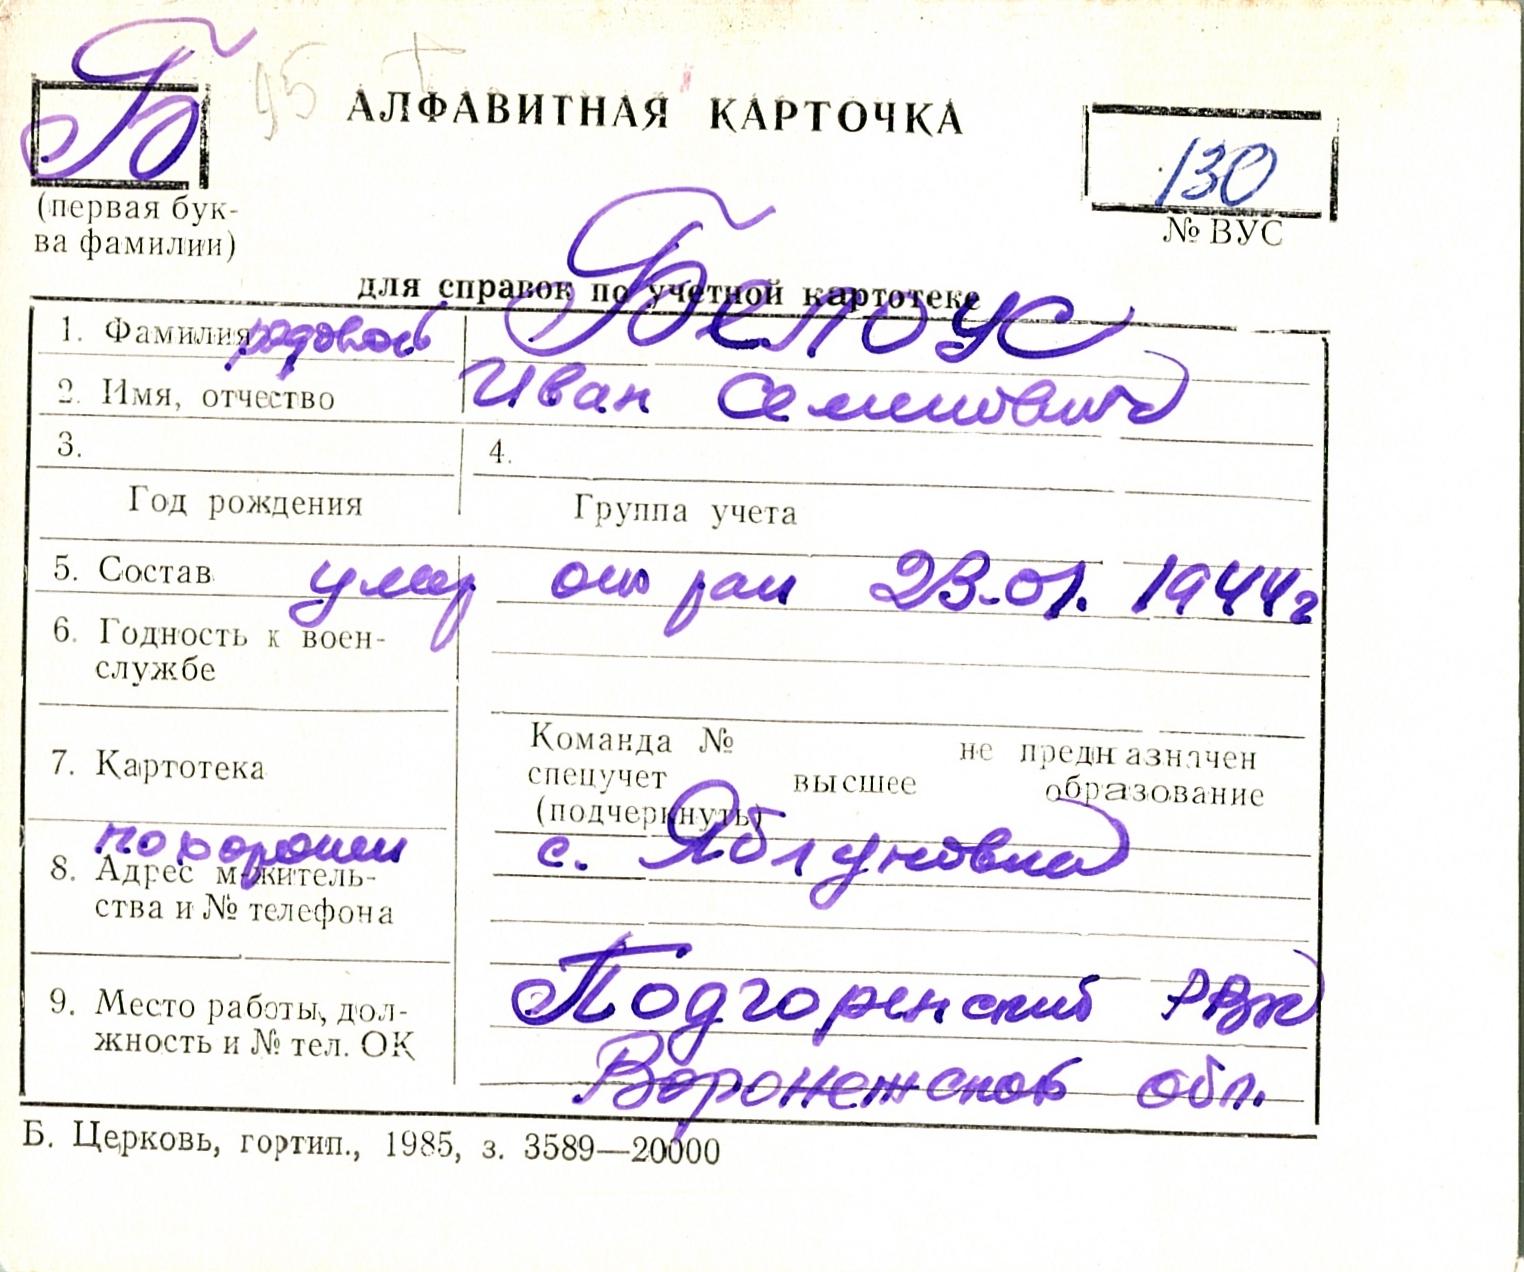 Б 95
АЛФАВИТНАЯ КАРТОЧКА
130
(первая бук-
ва фамилии)
№ ВУС
для справок по учетной картотеке
1. Фамилия рядовой Белоус
2. Имя, отчество Иван Семенович
3. 4.
Год рождения Группа учета
5. Состав умер от ран 23.01.1944г
6. Годность к воен-
службе
7. Картотека
Команда № не предназначен
спецучет высшее образование
(подчеркнуть)
похоронен с. Яблуновка
8. Адрес м-житель-
ства и № телефона
9. Место работы, дол-
жность и № тел. ОК
Подгоренский РВК
Воронежской обл.
Б. Церковь, гортип., 1985, з. 3589—20000